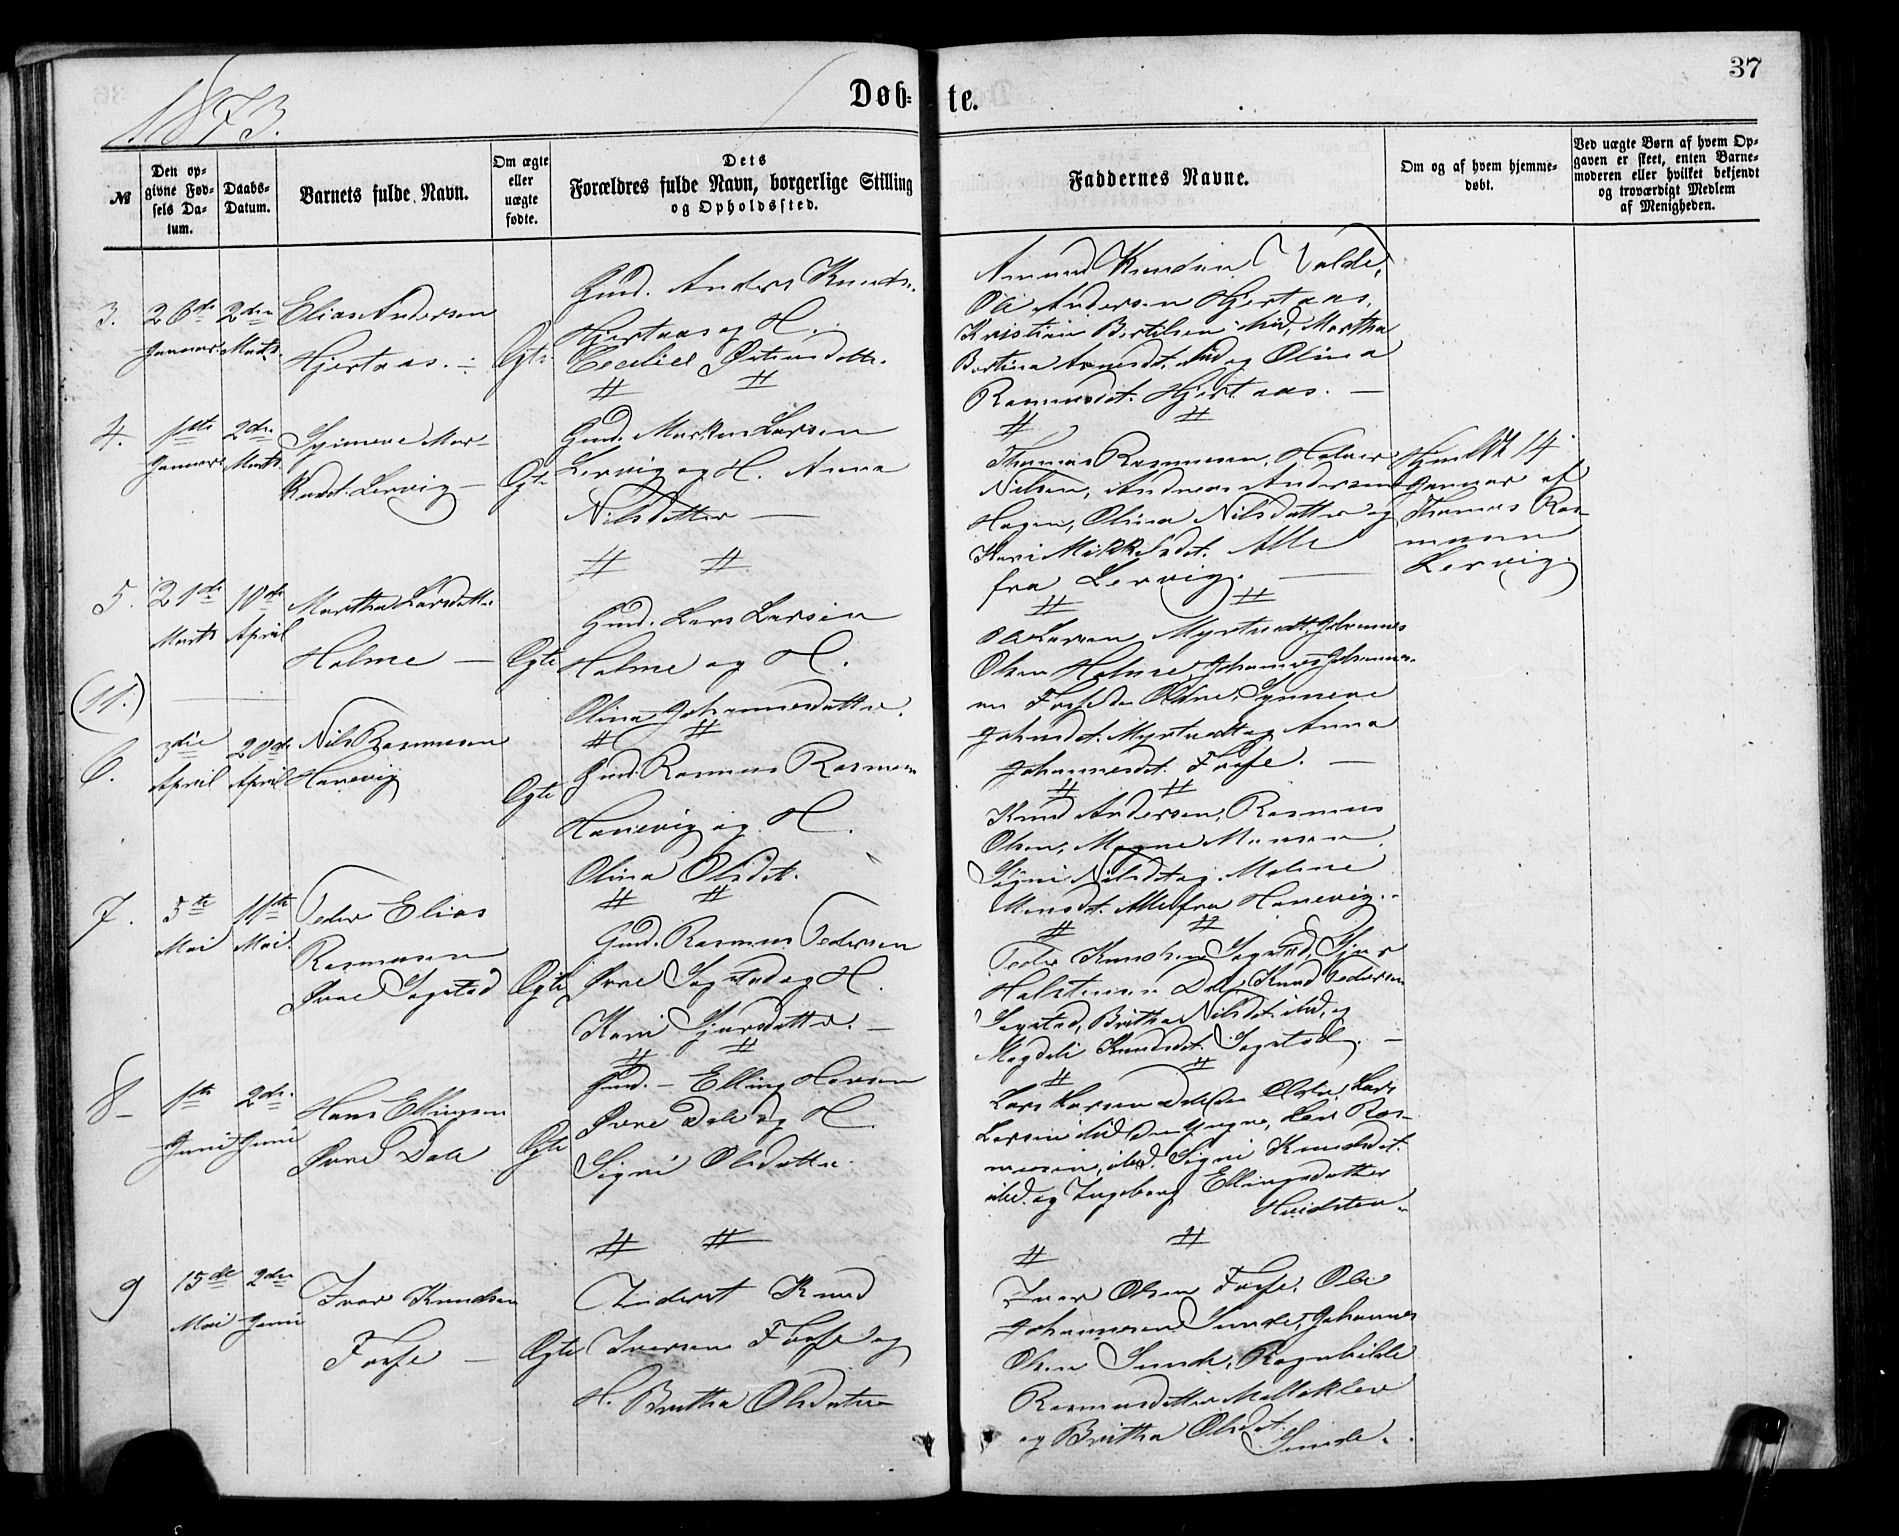 1873.
Døb=
te.
37
№
Den op-
givne Fød-
sels Da-
tum.
Daabs-
Datum.
Barnets fulde Navn.
Om ægte
eller
uægte
fødte.
Dets
Forældres fulde Navn, borgerlige Stilling
og Opholdssted.
Faddernes Navne.
Om og af hvem hjemme-
døbt.
Ved uægte Børn af hvem Op-
gaven er skeet, enten Barne-
moderen eller hvilket bekjendt
og troværdigt Medlem
af Menigheden.
3.
26de
Januar
2den
Marts.
Elias Andersen
Hjertaas. -
Egte
Gmd. Anders Knuds.
Hjertaas og H.
Cecilie
Amund Knudsen Valde,
Ole Andersen Hjertaas,
Kristian Bertelsen ibid, Martha
Bertina ibid og Olina
Rasmusdt. Hjertaas. -
4.
1ste
Januar
2den
Marts
Synneve Mar-
kusdt. Lervig -
Egte
Gmd. Markus Larsen
Lervig og H. Anna
Nilsdatter -
Thomas Rasmusen, Halvor
Nilsen, Andreas Andersen
Hagen, Olina Nilsdatter og
Kari Mikkelsdt. Alle
fra Lervig. -
Hjmdbt 14
Januar af
Thomas Ras-
musen
Lervig.
5.
21de
Marts
10de
April
Martha Larsdatter
Holme -
Egte
Gmd. Lars Larsen
Holme og H.
Olina Johannesdatter.
Ole Larsen Myrtvedt, Johannes
Olsen Holme, Johannes Johannes-
en Fosse den Eldre, Synneve
Johnsdt. Myrtvedt og Anna
Johannesdt. Fosse. -
(11.)
6.
3die
April
20de
April
Nils Rasmusen
Hanevig
Egte
Gmd. Rasmus Rasmusen
Hanevig og H.
Olina Olsdt.
Knud Andersen, Rasmus
Olsen, Magne Monsen,
Sygni Nilsdt og Malene
Monsdt. Alle fra Hanevig. -
7.
5te
Mai
11te
Mai.
Peder Elias
Rasmusen
Øvre Sagstad
Egte
Gmd. Rasmus Pedersen
Øvre Sagstad og H.
Kari Sjursdatter. -
Peder Knudsen Sagstad, Sjur
Halstensen Dale, Knud Pedersen
Sagstad, Britha Nilsdt. ibid, og
Magdeli Knudsdt. Sagstad. -
8-
1ste
Juni
2den
Juni
Hans Ellingsen
Øvre Dale
Egte
Gmd. - Elling Hansen
Øvre Dale og H.
Signi Olsdatter.
Lars Larsen Dale den Eldre, Lars
Larsen ibid den Yngre, Lars Ras-
musen, ibid. Signi Knudsdt.
ibid. og Ingeborg Ellingsdatter
Hvidsten.
9
15de
Mai
2den
Juni
Ivar Knudsen
Fosse -
Egte
Inderst Knud
Iversen Fosse og
H. Britha Olsdatter
Ivar Olsen Fosse, Ole
Johannesen Sunde, Johannes
Olsen Sunde, Ragnhilde
Rasmusdatter Molleklev
og Britha Olsdt.
Sunde.